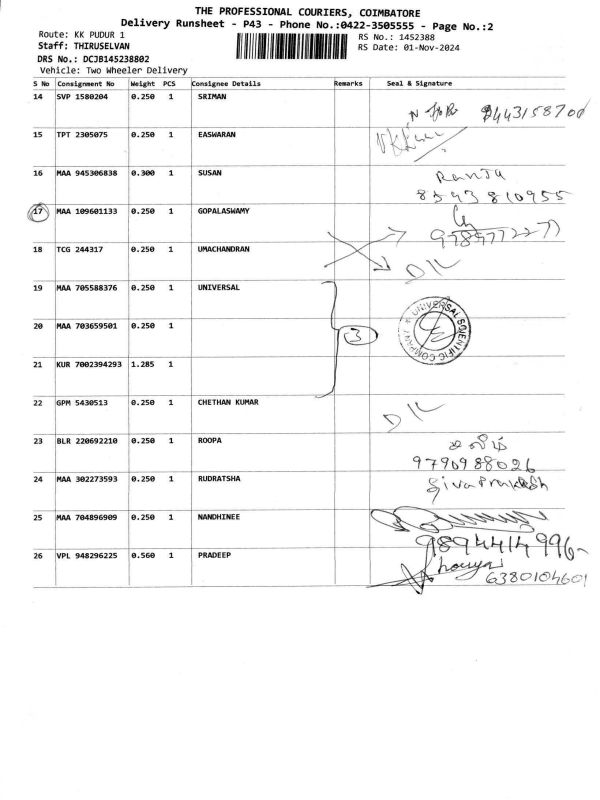 THE PROFESSIONAL COURIERS, COIMBATORE
Delivery Runsheet - P43 - Phone No.:0422-3505555 - Page No.:2
Route: KK PUDUR 1 RS No.: 1452388
Staff: THIRUSELVAN RS Date: 01-Nov-2024
DRS No.: DCJB145238802
Vehicle: Two Wheeler Delivery
S No Consignment No Weight PCS Consignee Details Remarks Seal & Signature
14 SVP 1580204 0.250 1 SRIMAN
15 TPT 2305075 0.250 1 EASWARAN
16 MAA 945306838 0.300 1 SUSAN Ranju
8543810955
17 MAA 109601133 0.250 1 GOPALASWAMY
18 TCG 244317 0.250 1 UMACHANDRAN D/L
19 MAA 705588376 0.250 1 UNIVERSAL
20 MAA 703659501 0.250 1 3 UNIVERSAL SCIENTIFIC COMPANY
21 KUR 7002394293 1.285 1
22 GPM 5430513 0.250 1 CHETHAN KUMAR D/L
23 BLR 220692210 0.250 1 ROOPA
9790988026
24 MAA 302273593 0.250 1 RUDRATSHA Sivaprakash
25 MAA 704896909 0.250 1 NANDHINEE
9894414996
26 VPL 948296225 0.560 1 PRADEEP
6380104601